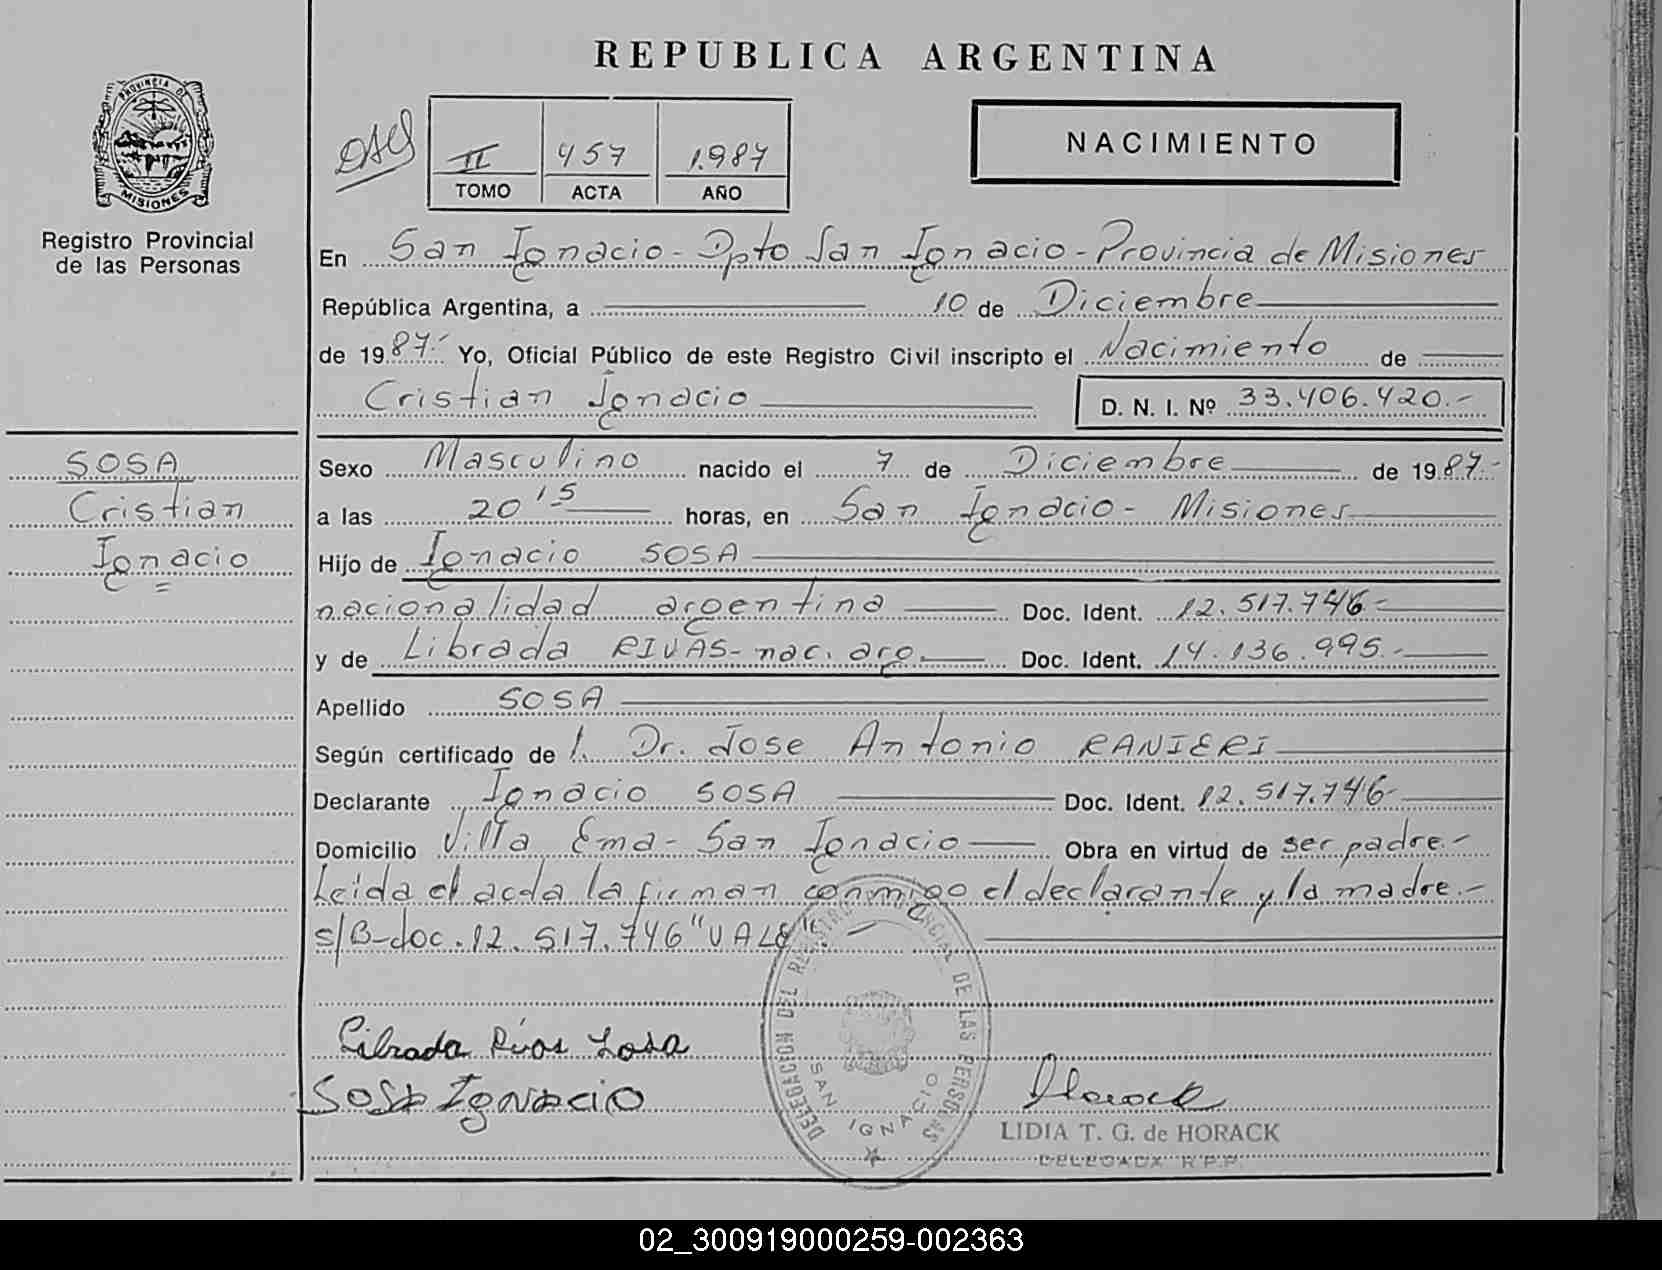 REPUBLICA ARGENTINA
PROVINCIA DE
MISIONES
Registro Provincial
de las Personas
II 457 1.987
TOMO ACTA AÑO
NACIMIENTO
En San Ignacio - Dpto San Ignacio - Provincia de Misiones
República Argentina, a 10 de Diciembre
de 1987.- Yo, Oficial Público de este Registro Civil inscripto el Nacimiento de
Cristian Ignacio D. N. I. Nº 33.406.420.-
SOSA
Cristian
Ignacio
Sexo Masculino nacido el 7 de Diciembre de 1987.-
a las 20 15 horas, en San Ignacio - Misiones
Hijo de Ignacio SOSA
nacionalidad argentina Doc. Ident. 12.517.746-
y de Librada RIVAS - nac. arg. Doc. Ident. 14.136.995.-
Apellido SOSA
Según certificado de 1. Dr. Jose Antonio RANIERI
Declarante Ignacio SOSA Doc. Ident. 12.517.746-
Domicilio Villa Ema - San Ignacio Obra en virtud de ser padre.-
Leida el acta la firman conmigo el declarante y la madre.-
s/B-doc. 12.517.746 "VALE".-
DELEGACION DEL REGISTRO PROVINCIAL DE LAS PERSONAS
SAN IGNACIO
Librada Rivas Sosa
SOSA IgNAciO
Horack
LIDIA T. G. de HORACK
DELEGADA R.P.P.
02_300919000259-002363